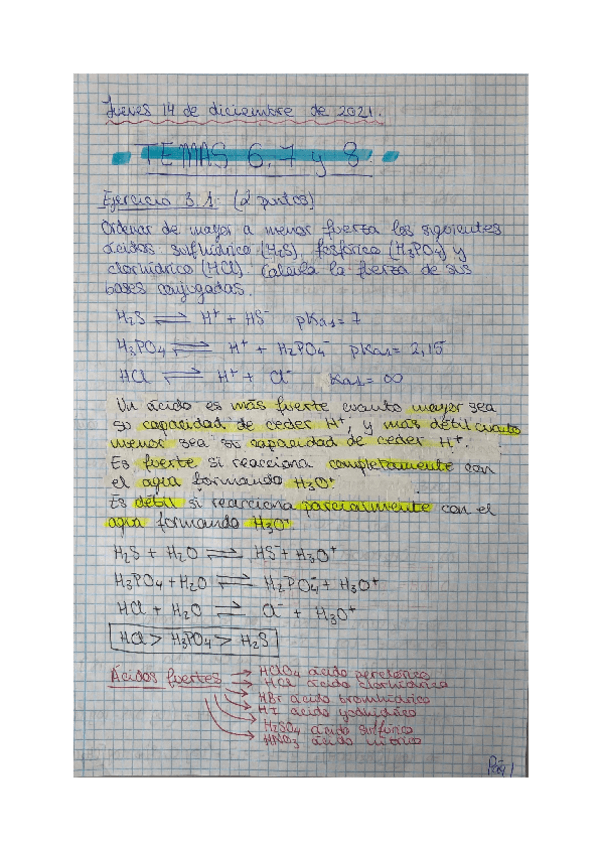 Jueves 14 de diciembre de 2021.
TEMAS 6,7 y 8
Ejercicio 3.1 (2 puntos)
Ordenar de mayor a menor fuerza los siguientes
ácidos: sulfhídrico (H₂S), fosfórico (H₃PO₄) y
clorhídrico (HCl). Calcula la fuerza de sus
bases conjugadas.
H₂S ⇌ H⁺ + HS⁻ pKa₁ = 7
H₃PO₄ ⇌ H⁺ + H₂PO₄⁻ pKa₁ = 2,15
HCl ⇌ H⁺ + Cl⁻ Ka₁ = ∞
Un ácido es más fuerte cuanto mayor sea
su capacidad de ceder H⁺, y más débil cuanto
menor sea su capacidad de ceder H⁺.
Es fuerte si reacciona completamente con
el agua formando H₃O⁺
Es débil si reacciona parcialmente con el
agua formando H₃O⁺
H₂S + H₂O ⇌ HS⁻ + H₃O⁺
H₃PO₄ + H₂O ⇌ H₂PO₄⁻ + H₃O⁺
HCl + H₂O ⇌ Cl⁻ + H₃O⁺
HCl > H₃PO₄ > H₂S
Ácidos fuertes → HClO₄ ácido perclórico
→ HCl ácido clorhídrico
→ HBr ácido bromhídrico
→ HI ácido yodhídrico
→ H₂SO₄ ácido sulfúrico
→ HNO₃ ácido nítrico